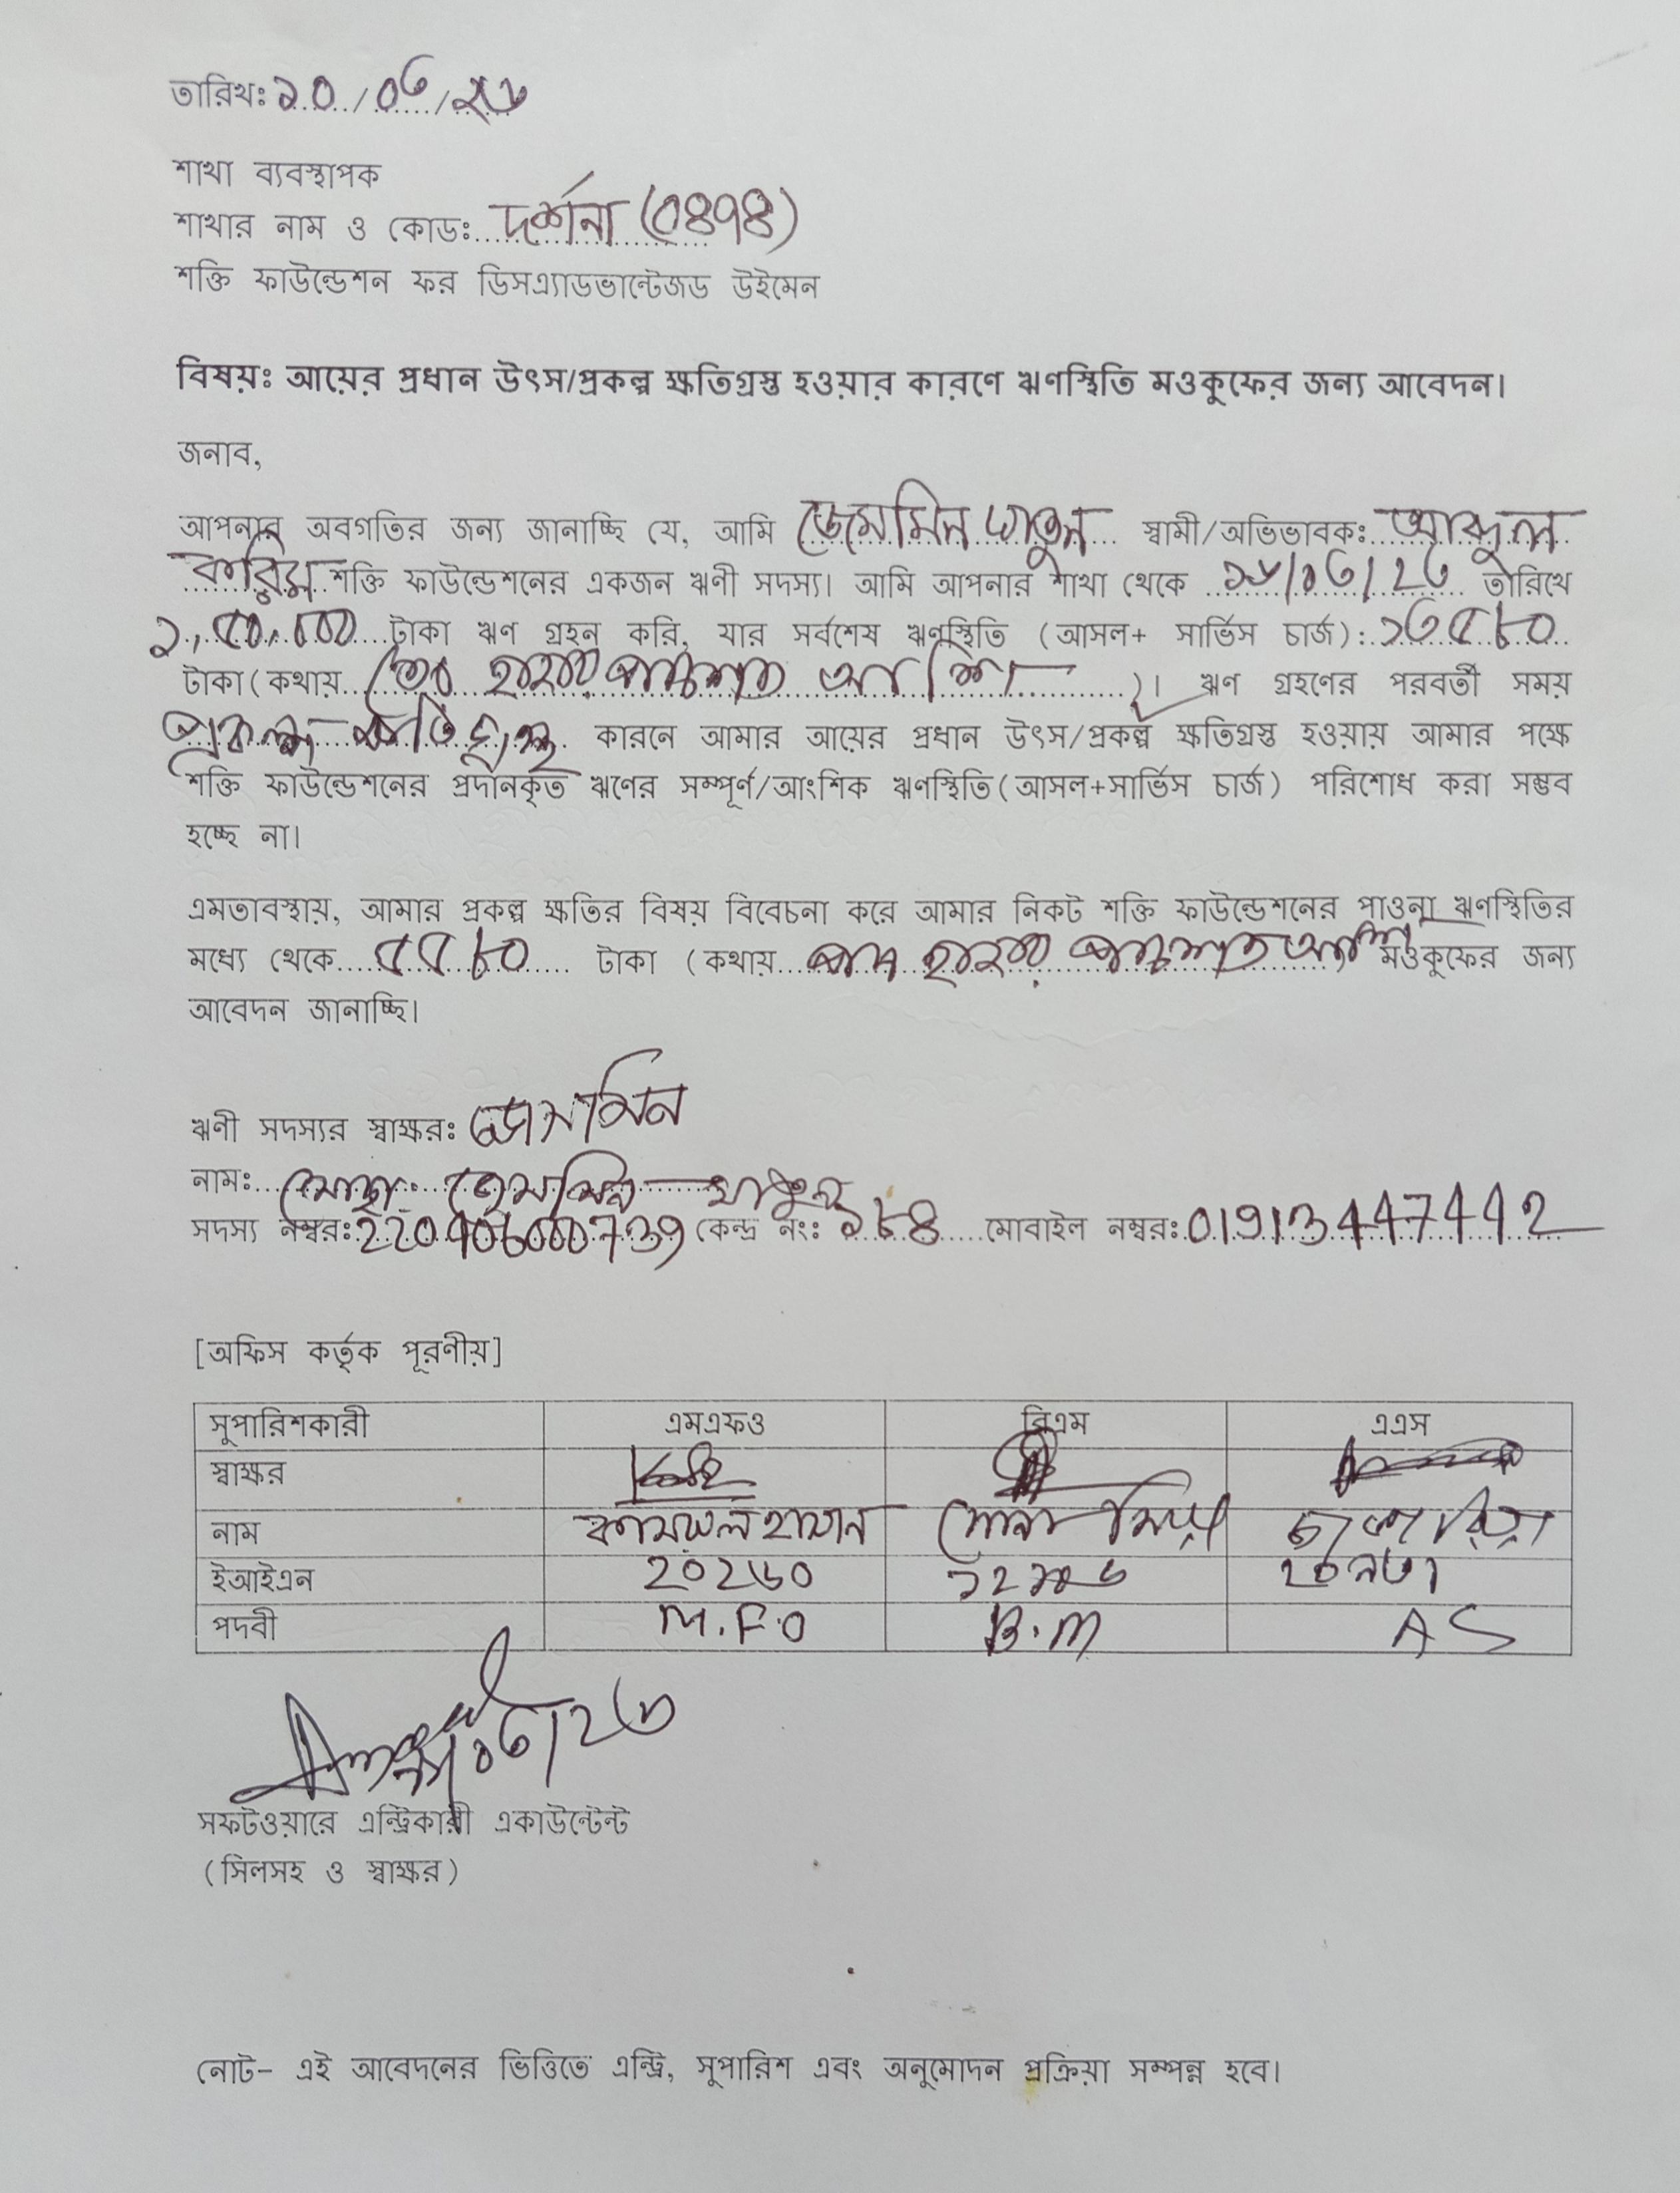 তারিখঃ ১০/০৬/২৬
শাখা ব্যবস্থাপক
শাখার নাম ও কোডঃ দর্শনা (০৪৭৪)
শক্তি ফাউন্ডেশন ফর ডিসএ্যাডভান্টেজড উইমেন
বিষয়ঃ আয়ের প্রধান উৎস/প্রকল্প ক্ষতিগ্রস্ত হওয়ার কারণে ঋণস্থিতি মওকুফের জন্য আবেদন।
জনাব,
আপনার অবগতির জন্য জানাচ্ছি যে, আমি জেসমিন খাতুন স্বামী/অভিভাবকঃ আব্দুল
করিম শক্তি ফাউন্ডেশনের একজন ঋণী সদস্য। আমি আপনার শাখা থেকে তারিখে
টাকা ঋণ গ্রহন করি, যার সর্বশেষ ঋণস্থিতি (আসল+ সার্ভিস চার্জ): ১৩৫৮০
টাকা(কথায় তের হাজার পাঁচশত আশি )। ঋণ গ্রহণের পরবর্তী সময়
প্রকল্প ক্ষতিগ্রস্থ কারনে আমার আয়ের প্রধান উৎস/প্রকল্প ক্ষতিগ্রস্ত হওয়ায় আমার পক্ষে
শক্তি ফাউন্ডেশনের প্রদানকৃত ঋণের সম্পূর্ণ/আংশিক ঋণস্থিতি(আসল+সার্ভিস চার্জ) পরিশোধ করা সম্ভব
হচ্ছে না।
এমতাবস্থায়, আমার প্রকল্প ক্ষতির বিষয় বিবেচনা করে আমার নিকট শক্তি ফাউন্ডেশনের পাওনা ঋণস্থিতির
মধ্যে থেকে ৫৫৮০ টাকা (কথায় পাচ হাজার পাচশত আশি মওকুফের জন্য
আবেদন জানাচ্ছি।
ঋণী সদস্যর স্বাক্ষরঃ জেসমিন
নামঃ মোছাঃ জেসমিন খাতুন
সদস্য নম্বরঃ কেন্দ্র নংঃ ১৮৪ মোবাইল নম্বরঃ 01913447442
[অফিস কর্তৃক পূরণীয়]
সুপারিশকারী এমএফও বিএম এএস
স্বাক্ষর
নাম কামরুল হাসান সোনা মিয়া
ইআইএন 20260
পদবী M.F.O B.M AS
সফটওয়ারে এন্ট্রিকারী একাউন্টেন্ট
(সিলসহ ও স্বাক্ষর)
নোট- এই আবেদনের ভিত্তিতে এন্ট্রি, সুপারিশ এবং অনুমোদন প্রক্রিয়া সম্পন্ন হবে।